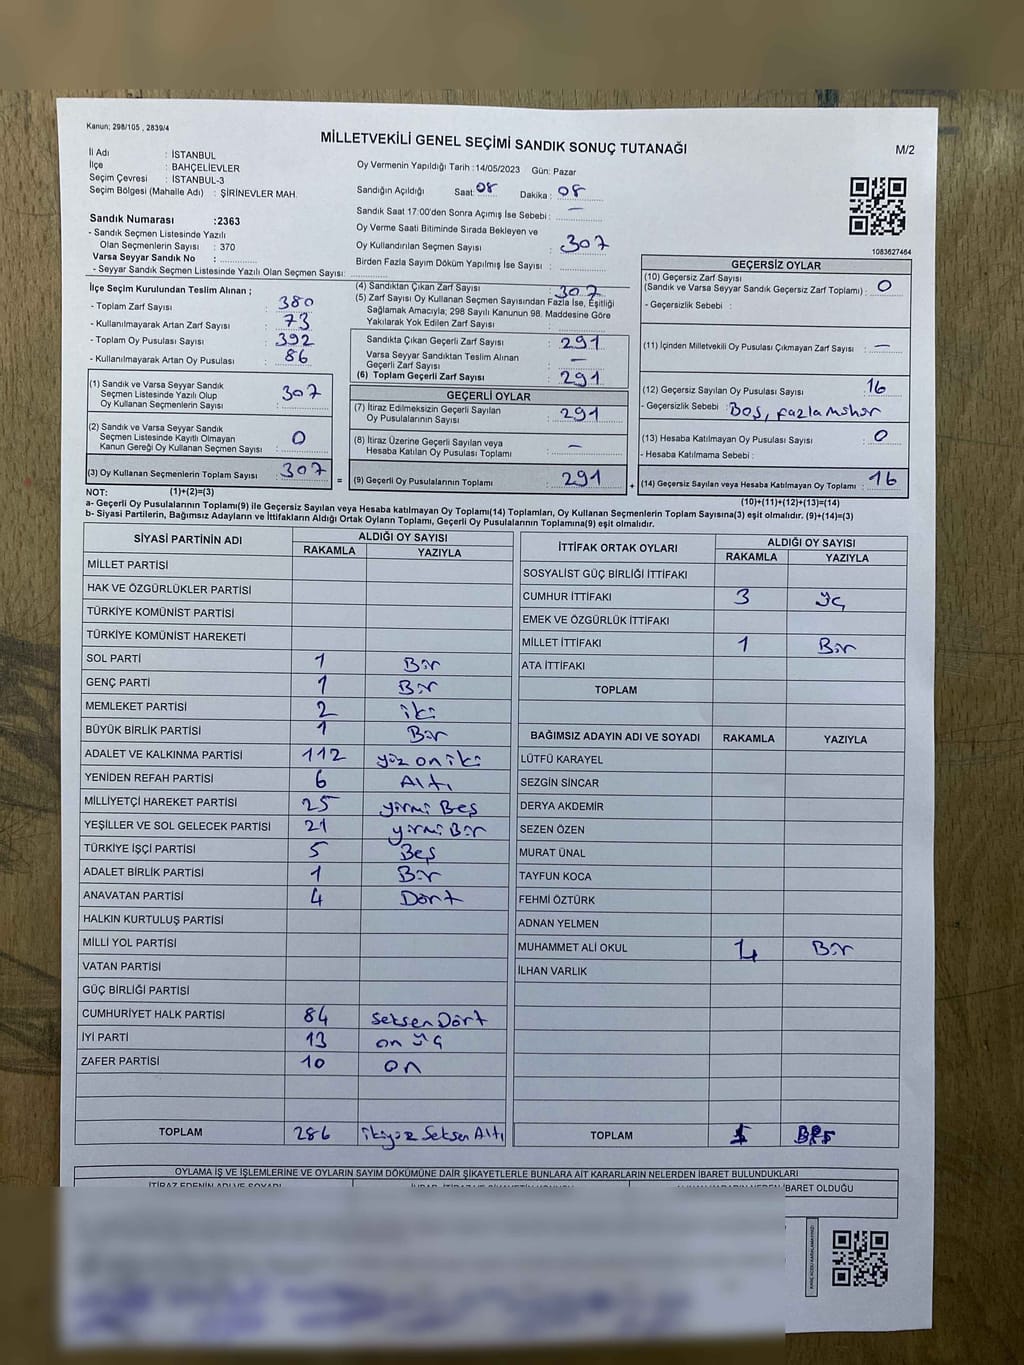 Kanun; 298/105 , 2839/4
MİLLETVEKİLİ GENEL SEÇİMİ SANDIK SONUÇ TUTANAĞI
M/2
İl Adı : İSTANBUL
İlçe : BAHÇELİEVLER
Seçim Çevresi : İSTANBUL-3
Seçim Bölgesi (Mahalle Adı) : ŞİRİNEVLER MAH.
Sandık Numarası :2363
- Sandık Seçmen Listesinde Yazılı
Olan Seçmenlerin Sayısı : 370
Varsa Seyyar Sandık No :
- Seyyar Sandık Seçmen Listesinde Yazılı Olan Seçmen Sayısı:
Oy Vermenin Yapıldığı Tarih :14/05/2023 Gün: Pazar
Sandığın Açıldığı Saat: 08 Dakika : 08
Sandık Saat 17:00'den Sonra Açımış İse Sebebi : —
Oy Verme Saati Bitiminde Sırada Bekleyen ve
Oy Kullandırılan Seçmen Sayısı : 307
Birden Fazla Sayım Döküm Yapılmış İse Sayısı :
1083627464
İlçe Seçim Kurulundan Teslim Alınan ;
- Toplam Zarf Sayısı : 380
- Kullanılmayarak Artan Zarf Sayısı : 73
- Toplam Oy Pusulası Sayısı : 392
- Kullanılmayarak Artan Oy Pusulası : 86
(1) Sandık ve Varsa Seyyar Sandık
Seçmen Listesinde Yazılı Olup
Oy Kullanan Seçmenlerin Sayısı : 307
(2) Sandık ve Varsa Seyyar Sandık
Seçmen Listesinde Kayıtlı Olmayan
Kanun Gereği Oy Kullanan Seçmen Sayısı : 0
(3) Oy Kullanan Seçmenlerin Toplam Sayısı : 307
(4) Sandıktan Çıkan Zarf Sayısı : 307
(5) Zarf Sayısı Oy Kullanan Seçmen Sayısından Fazla İse, Eşitliği
Sağlamak Amacıyla; 298 Sayılı Kanunun 98. Maddesine Göre
Yakılarak Yok Edilen Zarf Sayısı :
Sandıkta Çıkan Geçerli Zarf Sayısı : 291
Varsa Seyyar Sandıktan Teslim Alınan
Geçerli Zarf Sayısı : —
(6) Toplam Geçerli Zarf Sayısı : 291
GEÇERLİ OYLAR
(7) İtiraz Edilmeksizin Geçerli Sayılan
Oy Pusulalarının Sayısı : 291
(8) İtiraz Üzerine Geçerli Sayılan veya
Hesaba Katılan Oy Pusulası Toplamı : —
= (9) Geçerli Oy Pusulalarının Toplamı : 291
GEÇERSİZ OYLAR
(10) Geçersiz Zarf Sayısı
(Sandık ve Varsa Seyyar Sandık Geçersiz Zarf Toplamı) : 0
- Geçersizlik Sebebi :
(11) İçinden Milletvekili Oy Pusulası Çıkmayan Zarf Sayısı : —
(12) Geçersiz Sayılan Oy Pusulası Sayısı : 16
- Geçersizlik Sebebi : Boş, fazla mühür
(13) Hesaba Katılmayan Oy Pusulası Sayısı : 0
- Hesaba Katılmama Sebebi :
+ (14) Geçersiz Sayılan veya Hesaba Katılmayan Oy Toplamı : 16
NOT: (1)+(2)=(3)
(10)+(11)+(12)+(13)=(14)
a- Geçerli Oy Pusulalarının Toplamı(9) ile Geçersiz Sayılan veya Hesaba katılmayan Oy Toplamı(14) Toplamları, Oy Kullanan Seçmenlerin Toplam Sayısına(3) eşit olmalıdır. (9)+(14)=(3)
b- Siyasi Partilerin, Bağımsız Adayların ve İttifakların Aldığı Ortak Oyların Toplamı, Geçerli Oy Pusulalarının Toplamına(9) eşit olmalıdır.
SİYASİ PARTİNİN ADI ALDIĞI OY SAYISI
RAKAMLA YAZIYLA
MİLLET PARTİSİ
HAK VE ÖZGÜRLÜKLER PARTİSİ
TÜRKİYE KOMÜNİST PARTİSİ
TÜRKİYE KOMÜNİST HAREKETİ
SOL PARTİ 1 Bir
GENÇ PARTİ 1 Bir
MEMLEKET PARTİSİ 2 iki
BÜYÜK BİRLİK PARTİSİ 1 Bir
ADALET VE KALKINMA PARTİSİ 112 yüz on iki
YENİDEN REFAH PARTİSİ 6 Altı
MİLLİYETÇİ HAREKET PARTİSİ 25 yirmi Beş
YEŞİLLER VE SOL GELECEK PARTİSİ 21 yirmi Bir
TÜRKİYE İŞÇİ PARTİSİ 5 Beş
ADALET BİRLİK PARTİSİ 1 Bir
ANAVATAN PARTİSİ 4 Dört
HALKIN KURTULUŞ PARTİSİ
MİLLİ YOL PARTİSİ
VATAN PARTİSİ
GÜÇ BİRLİĞİ PARTİSİ
CUMHURİYET HALK PARTİSİ 84 Seksen Dört
İYİ PARTİ 13 on üç
ZAFER PARTİSİ 10 on
TOPLAM 286 ikiyüz Seksen Altı
İTTİFAK ORTAK OYLARI ALDIĞI OY SAYISI
RAKAMLA YAZIYLA
SOSYALİST GÜÇ BİRLİĞİ İTTİFAKI
CUMHUR İTTİFAKI 3 üç
EMEK VE ÖZGÜRLÜK İTTİFAKI
MİLLET İTTİFAKI 1 Bir
ATA İTTİFAKI
TOPLAM
BAĞIMSIZ ADAYIN ADI VE SOYADI RAKAMLA YAZIYLA
LÜTFÜ KARAYEL
SEZGİN SİNCAR
DERYA AKDEMİR
SEZEN ÖZEN
MURAT ÜNAL
TAYFUN KOCA
FEHMİ ÖZTÜRK
ADNAN YELMEN
MUHAMMET ALİ OKUL 1 Bir
İLHAN VARLIK
TOPLAM
OYLAMA İŞ VE İŞLEMLERİNE VE OYLARIN SAYIM DÖKÜMÜNE DAİR ŞİKAYETLERLE BUNLARA AİT KARARLARIN NELERDEN İBARET BULUNDUKLARI
İTİRAZ EDENİN ADI VE SOYADI
İBARET OLDUĞU